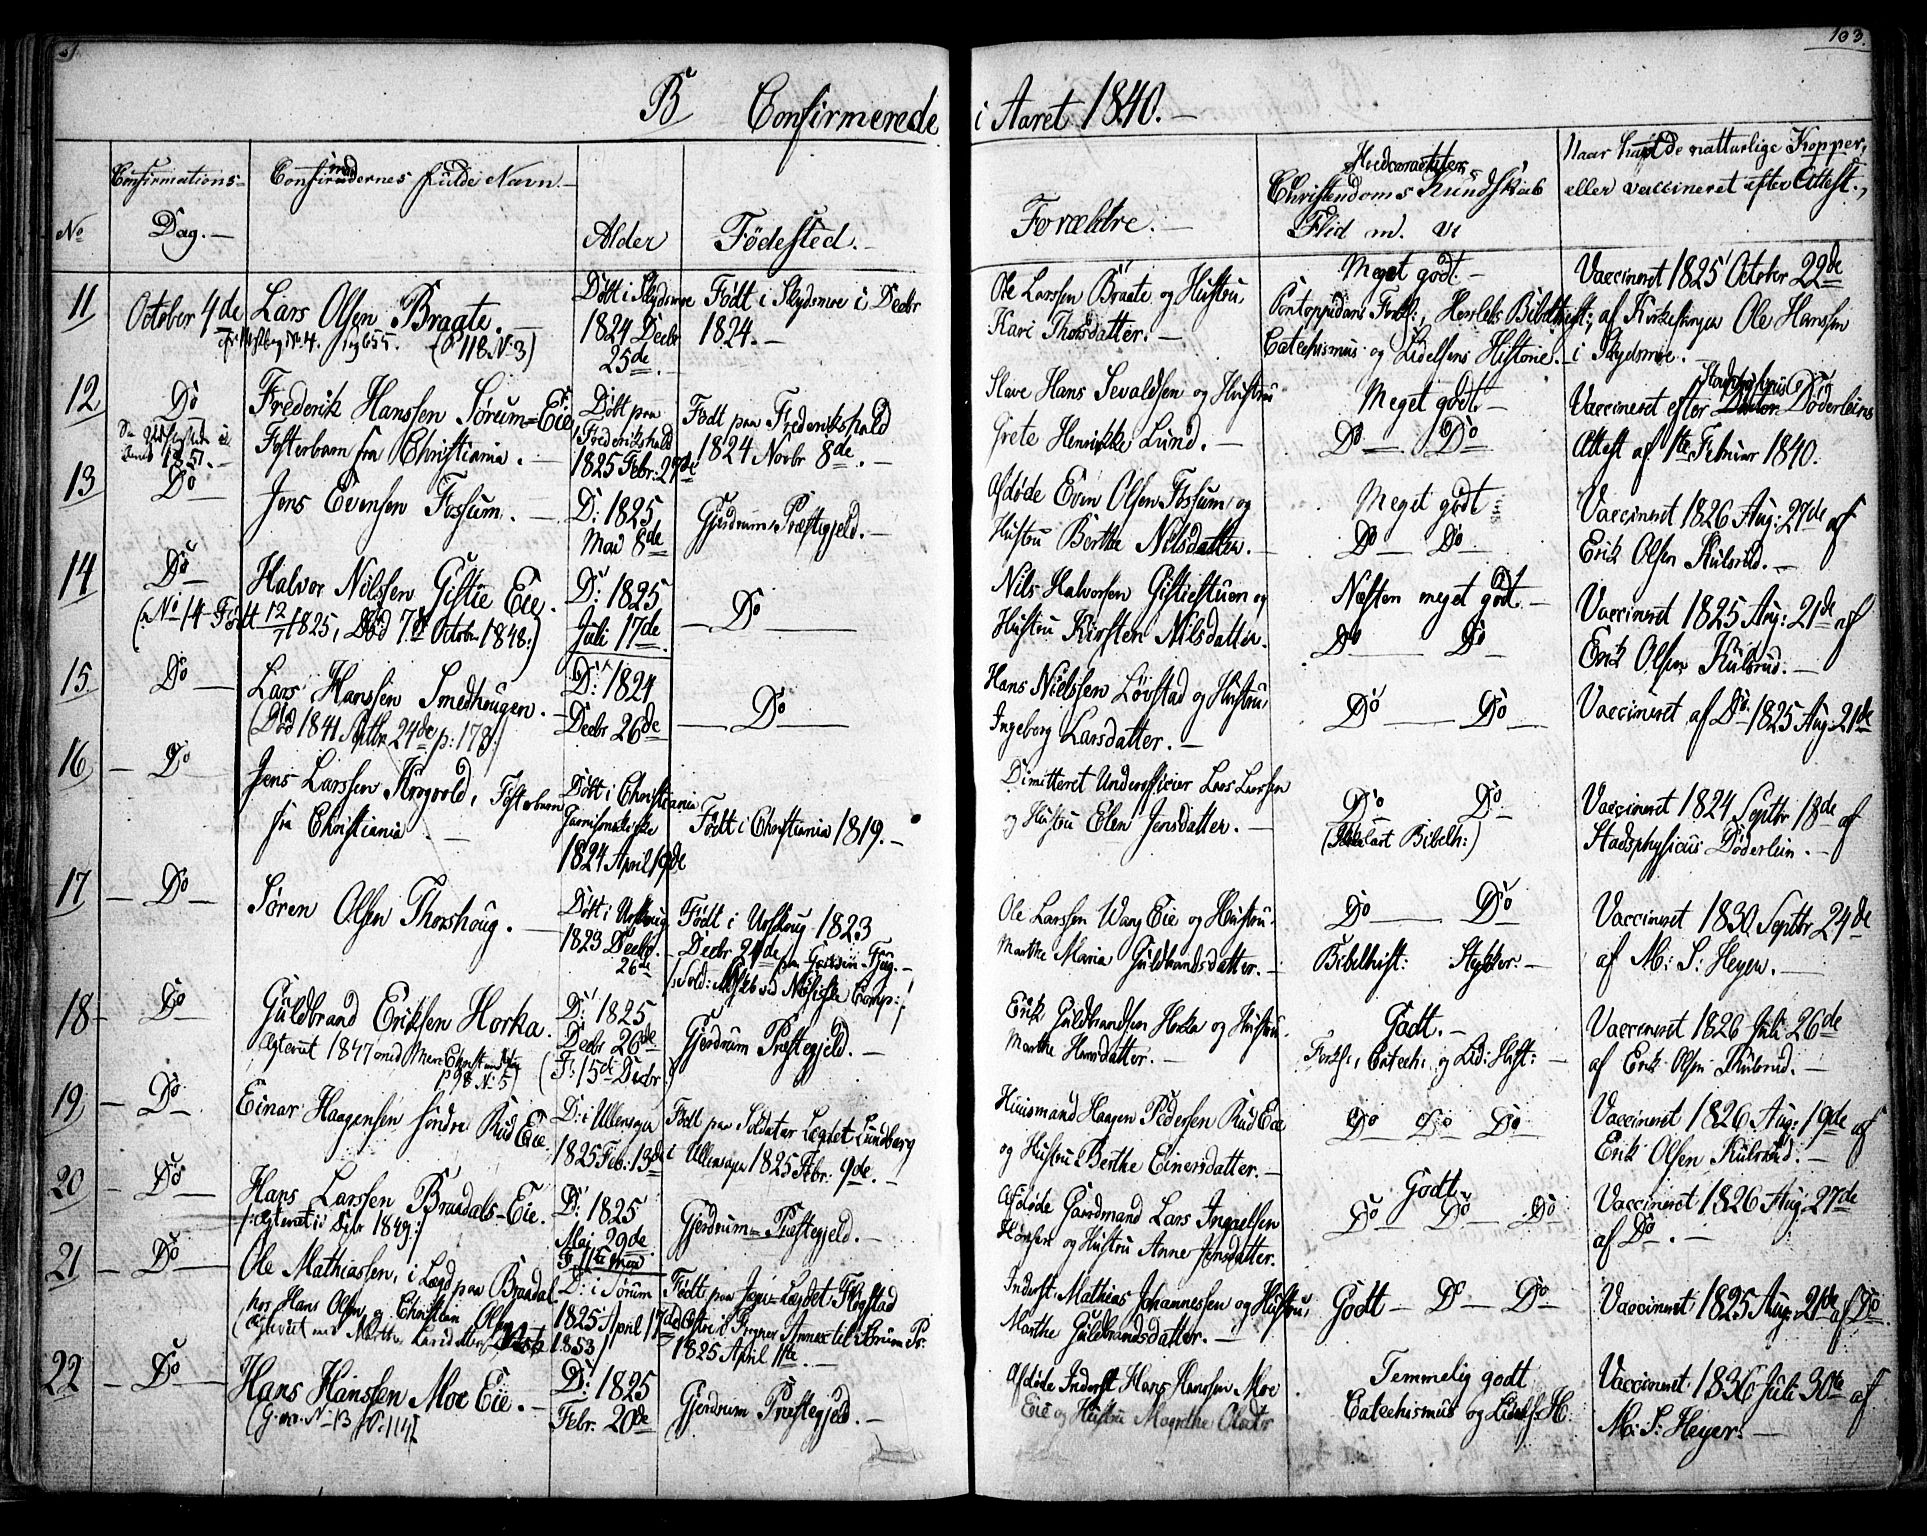 103.
B Confirmerede i Aaret 1840. —
No
Confirmations-
Dag. —
Confirmadernes fulde Navn —
Alder
Fødested. —
Forældre. —
Christendoms Kundskab
Flid m. v.
Naar havde naturlige Kopper,
eller vaccineret efter Attest.,
11
October 4de
Lars Olsen Braate. —
(p 118 N. 3)
Døbt i Skydsmoe
1824 Decbr
25de. —
Født i Skydsmoe i Decbr
1824. —
Ole Larssen Braate og Hustru,
Kari Thorsdatter. —
Meget godt. —
Pontoppidans Forkl:, Herslebs Bibelhist:,
Catechismus og Lidelsens Historie. —
Vaccineret 1825 October 22de
af Kirkesanger Ole Hanssen
i Skydsmoe. —
12
Do
Frederik Hanssen Sørum=Eie
Fosterbarn fra Christiania. —
Døbt paa
Frederikshald
1825 Febr: 27de
Født paa Frederikshald
1824 Novbr 8de. —
Slave Hans Sevaldsen og Hustru
Grete Henrikke Lund. —
Meget godt. —
Do — Do
Vaccineret efter Døderleins
Attest af 1te Februar 1840.
13
Do
Jens Evensen Fossum. —
D: 1825
Mai 8de
Gjerdrum Præstegjeld. —
Afdøde Even Olsen Fossum og
Hustru Berthe Nilsdatter. —
Meget godt
Do — Do —
Vaccineret 1826 Aug: 27de af
Erik Olsen Kulsrud. —
14
Do —
Halvor Nilssen Gistie Eie.
(: No 14 Født 12/7 1825, Død 7de October 1848:)
D: 1825
Juli 17de.
— Do —
Nils Halvorsen Gistiestuen og
Hustru Kirsten Nilsdatter. —
Næsten meget godt —
Do — Do —
Vaccineret 1825 Aug: 21de af
Erik Olsen Kulsrud. —
15
Do —
Lars Hanssen Smedhougen. —
(Død 1841 Septbr 24de p: 178:)
D: 1824
Decbr 26de
— Do —
Hans Nielssen Løvstad og Hustru,
Ingeborg Larsdatter. —
Do — Do —
Vaccineret af Do 1825 Aug: 21de
16
— Do
Jens Larssen Krogvold, Fosterbarn
fra Christiania. —
Døbt i Christiania
Garnisonskirke
1824 April 19de
Født i Christiania 1819. —
Dimitteret Underofficier Lars Larssen
og Hustru Elen Jensdatter. —
Do Do
Bibelh:)
Vaccineret 1824 Septbr 18de af
Stadsphysicus Døderlein. —
17
— Do —
Søren Olsen Thorshoug. —
Døbt i Urskoug
1823 Decbr.
26de
Født i Urskoug 1823
Decbr 21de
Ole Larssen Wang Eie og Hustru
Marthe Maria Guldbrandsdatter. —
Do — Do —
Bibelhist: Stykker: —
Vaccineret 1830 Septbr 24de
af M: S: Heyer. —
18
— Do —
Guldbrand Eriksen Horka.
Ægteviet 1847 med
p 98 N: 5)
D: 1825
Decbr 26de
(F: 15de Decbr:)
Gjerdrum Præstegjeld. —
Erik Guldbrandsen Horka og Hustru
Marthe Hansdatter. —
Godt. —
Forkl:, Catech: og Lid: Hist: —
Vaccineret 1826 Juli 26de
af Erik Olsen Kulsrud. —
19
— Do —
Einar Haagensen søndre Rud Eie
D: i Ullensager
1825 Feb: 13de
Født paa Soldater Legdet Lundberg
i Ullensager 1825 Febr: 9de. —
Huusmand Haagen Pedersen Rud Eie
og Hustru Berthe Einersdatter. —
Do — Do — Do —
Vaccineret 1826 Aug: 19de af
Erik Olsen Kulsrud. —
20
— Do —
Hans Larssen Braadals-Eie.
(:Ægteviet i Decbr 1849:)
D: 1825
Mai 29de
F. 11te Mai
Gjerdrum= Præstegjeld. —
Afdøde Gaardmand Lars Ingvelsen
og Hustru Anne Jensdatter.
Godt.
Do — Do — Do
Vaccineret 1826 Aug: 27de
af Do. —
21
— Do —
Ole Mathiassen, i Lægd paa Braadal
hos Hans Olsen og Christian Olsen
(Ægteviet med Marthe Larsdatter 1853)
D: i Sørum
1825 April 17de
Født paa Legdet Flogstad
Annex til Sørum Pr.
1825 April 11te. —
Inderst Mathias Johannessen og Hustru,
Marthe Guldbrandsdatter. —
Godt — Do — Do —
Vaccineret 1825 Aug: 21de af Do
22
— Do —
Hans Hanssen Moe Eie. —
D: 1825
Febr. 20de
Gjerdrum Præstegjeld. —
Afdøde Inderst Hans Hanssen Moe
Eie og Hustru Magrethe Olsdtr
Temmelig godt
Catechismus og Lidels: H:
Vaccineret 1836 Juli 30te af
M: S: Heyer: —